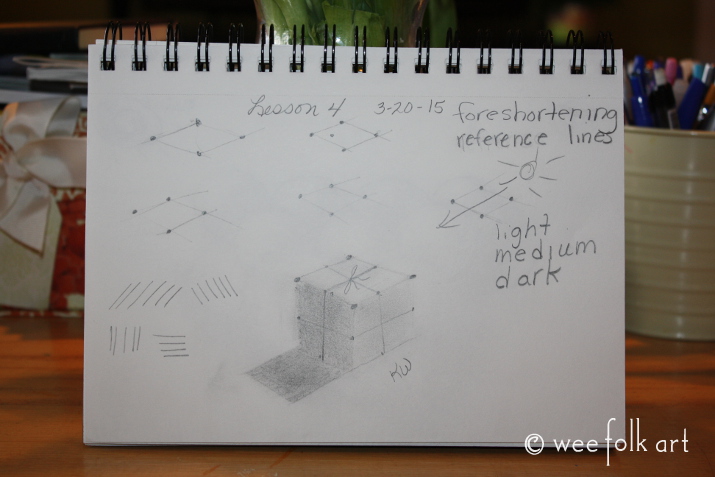 Lesson 4 3-20-15 foreshortening
reference lines
light
medium
dark
KW
© wee folk art